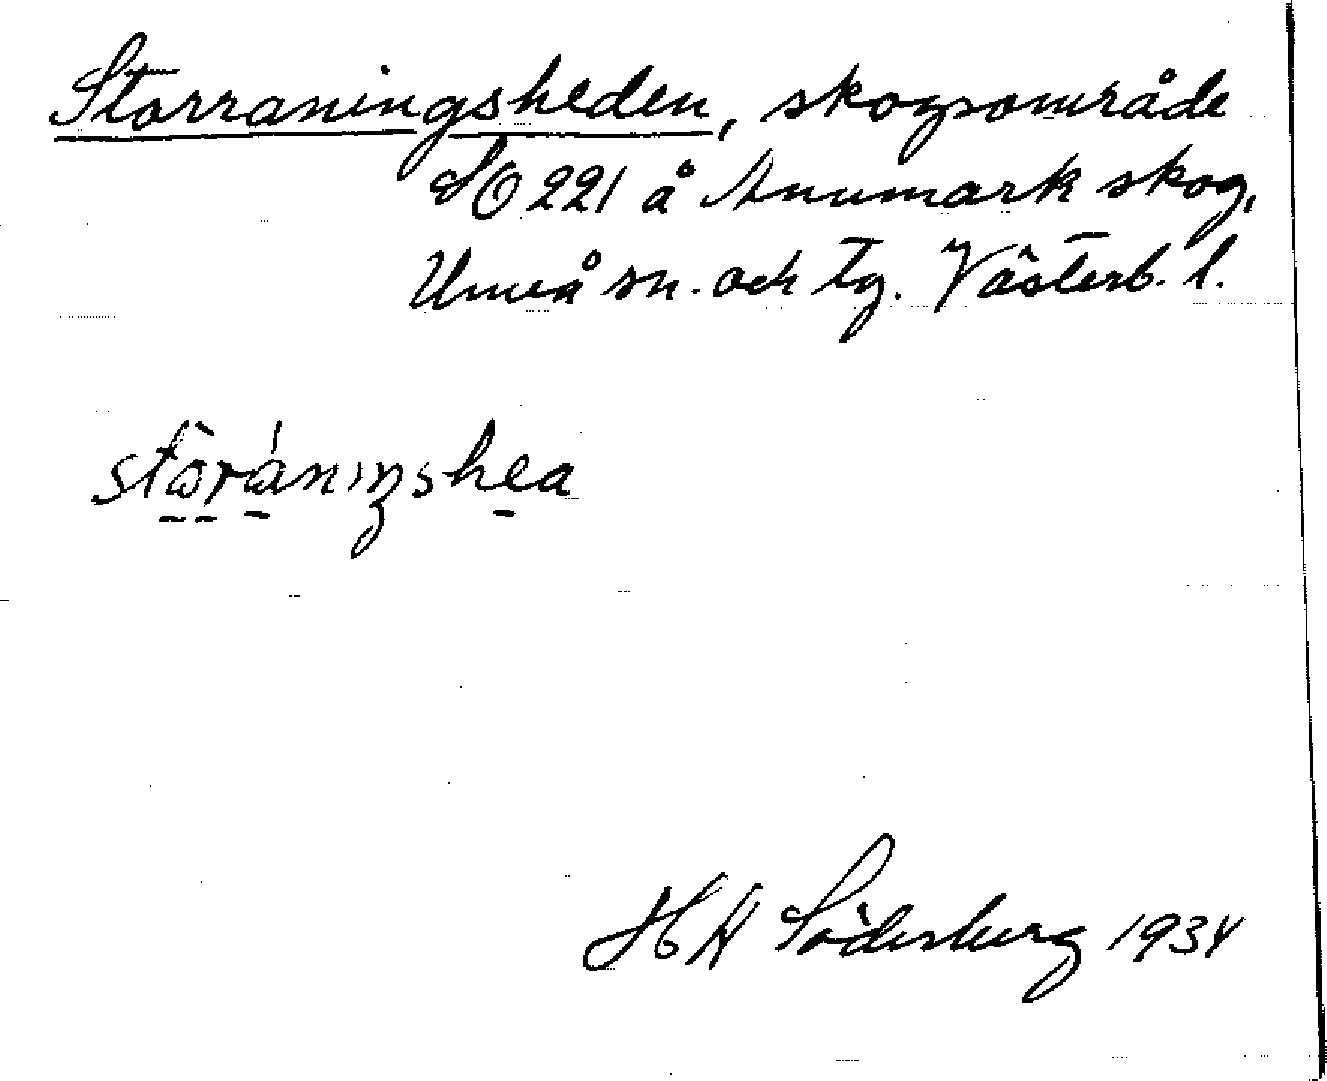 Storraningsheden, skogsområde
SO 221 å Anumark skog,
Umeå sn. och tg. Västerb. l.
stòráningshea
H A Söderberg 1934